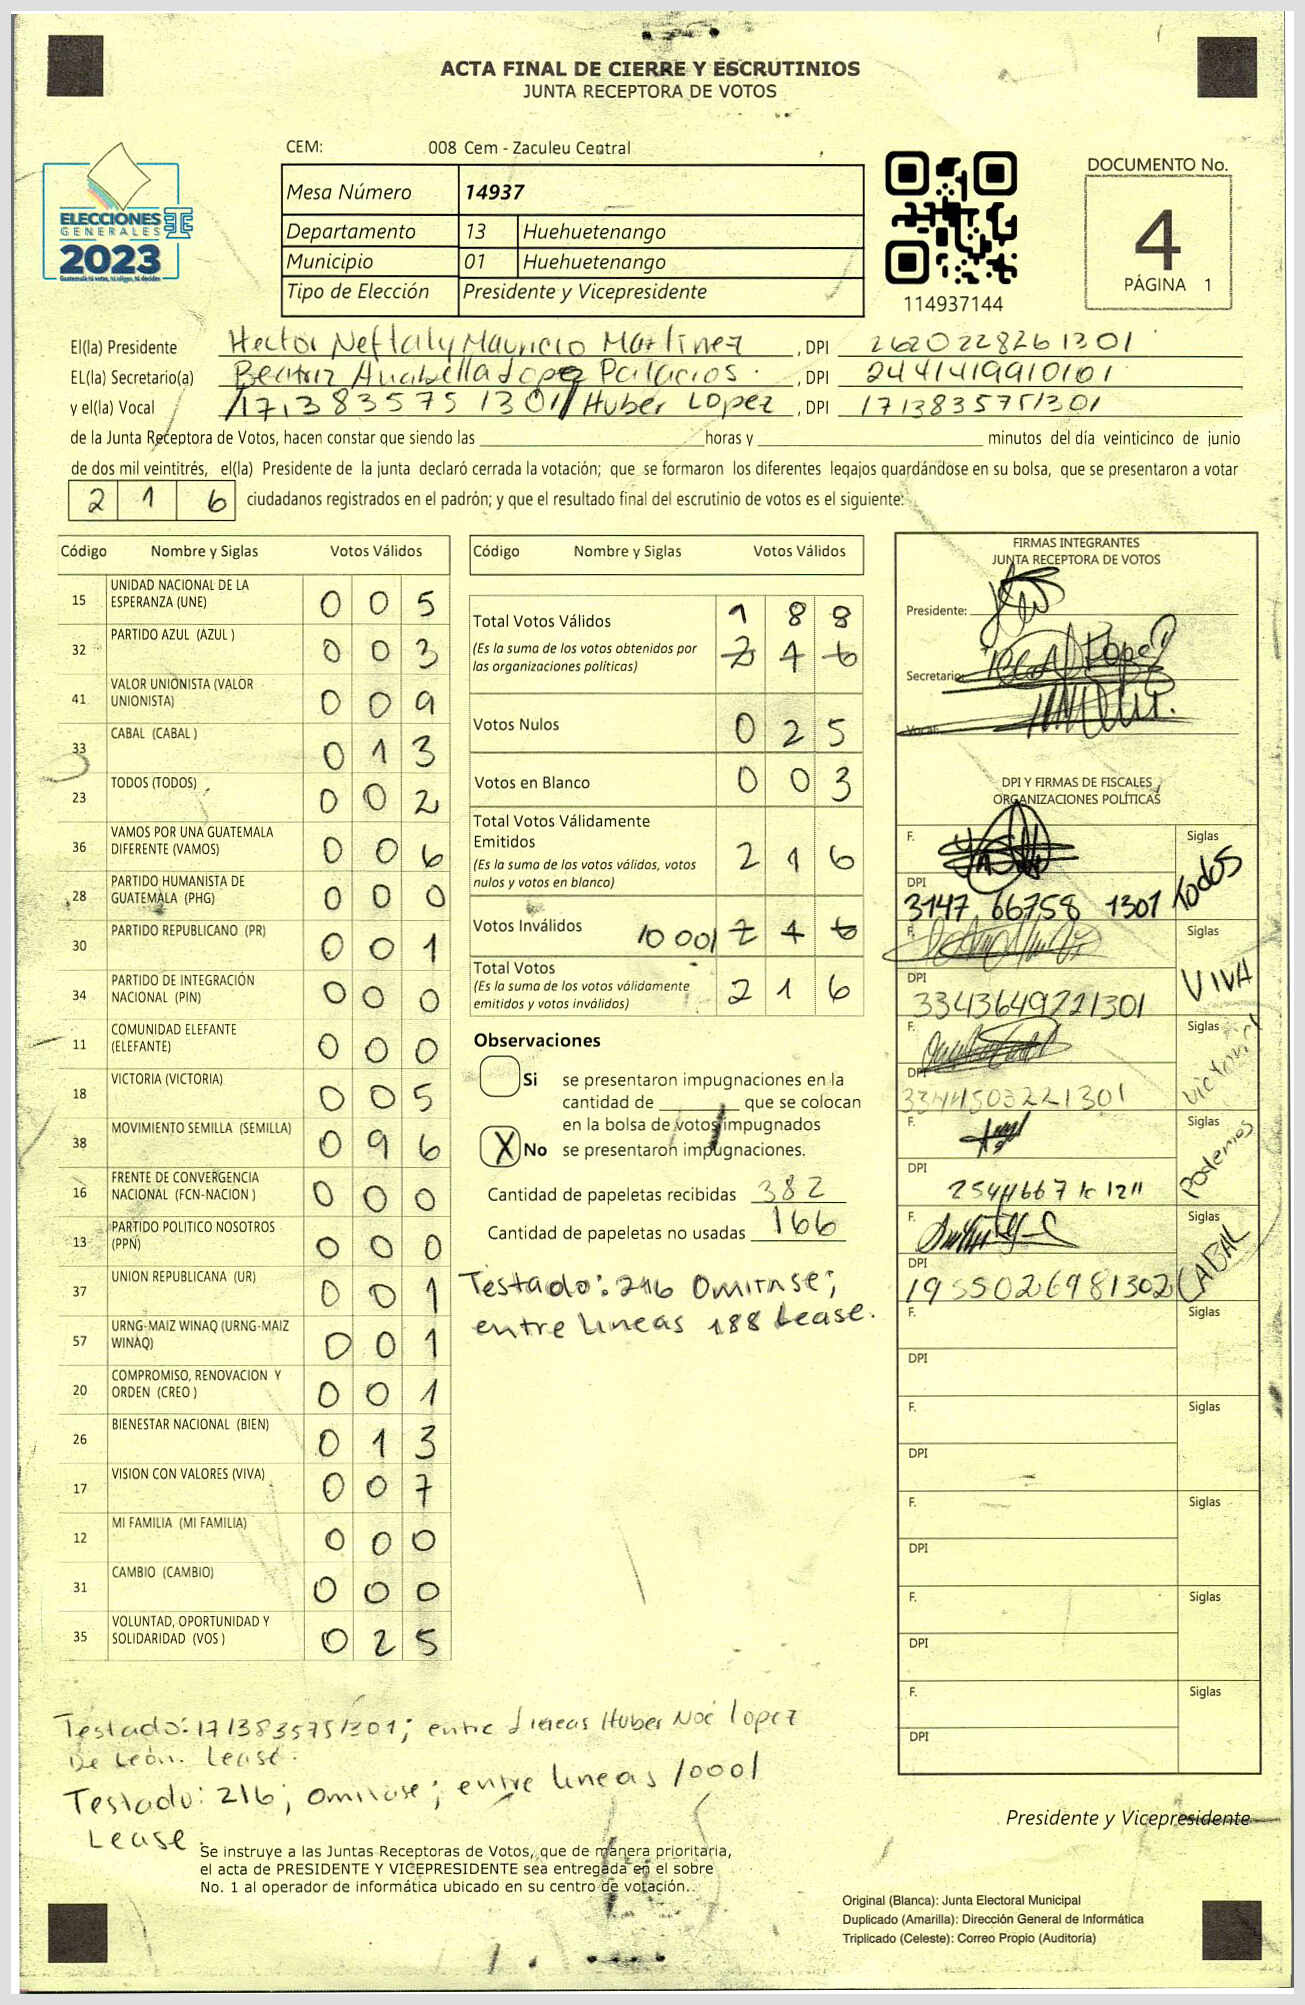 ACTA FINAL DE CIERRE Y ESCRUTINIOS
JUNTA RECEPTORA DE VOTOS
CEM: 008 Cem - Zaculeu Central
ELECCIONES
GENERALES
2023
Mesa Número 14937
Departamento 13 Huehuetenango
Municipio 01 Huehuetenango
Tipo de Elección Presidente y Vicepresidente
114937144
DOCUMENTO No.
4
PÁGINA 1
El(la) Presidente Hector Neftaly Mauricio Martinez , DPI 2620228261301
EL(la) Secretario(a) Beatriz Anabella Lopez Palacios. , DPI 2441419910101
y el(la) Vocal /1713835751301/ Huber Lopez , DPI 1713835751301
de la Junta Receptora de Votos, hacen constar que siendo las horas y minutos del día veinticinco de junio
de dos mil veintitrés, el(la) Presidente de la junta declaró cerrada la votación; que se formaron los diferentes legajos guardándose en su bolsa, que se presentaron a votar
2 1 6 ciudadanos registrados en el padrón; y que el resultado final del escrutinio de votos es el siguiente:
Código Nombre y Siglas Votos Válidos
15 UNIDAD NACIONAL DE LA ESPERANZA (UNE) 0 0 5
32 PARTIDO AZUL (AZUL ) 0 0 3
41 VALOR UNIONISTA (VALOR UNIONISTA) 0 0 9
33 CABAL (CABAL ) 0 1 3
23 TODOS (TODOS) 0 0 2
36 VAMOS POR UNA GUATEMALA DIFERENTE (VAMOS) 0 0 6
28 PARTIDO HUMANISTA DE GUATEMALA (PHG) 0 0 0
30 PARTIDO REPUBLICANO (PR) 0 0 1
34 PARTIDO DE INTEGRACIÓN NACIONAL (PIN) 0 0 0
11 COMUNIDAD ELEFANTE (ELEFANTE) 0 0 0
18 VICTORIA (VICTORIA) 0 0 5
38 MOVIMIENTO SEMILLA (SEMILLA) 0 9 6
16 FRENTE DE CONVERGENCIA NACIONAL (FCN-NACION ) 0 0 0
13 PARTIDO POLITICO NOSOTROS (PPN) 0 0 0
37 UNION REPUBLICANA (UR) 0 0 1
57 URNG-MAIZ WINAQ (URNG-MAIZ WINAQ) 0 0 1
20 COMPROMISO, RENOVACION Y ORDEN (CREO ) 0 0 1
26 BIENESTAR NACIONAL (BIEN) 0 1 3
17 VISION CON VALORES (VIVA) 0 0 7
12 MI FAMILIA (MI FAMILIA) 0 0 0
31 CAMBIO (CAMBIO) 0 0 0
35 VOLUNTAD, OPORTUNIDAD Y SOLIDARIDAD (VOS ) 0 2 5
Código Nombre y Siglas Votos Válidos
Total Votos Válidos 1 8 8
(Es la suma de los votos obtenidos por las organizaciones políticas) 2 1 6
Votos Nulos 0 2 5
Votos en Blanco 0 0 3
Total Votos Válidamente Emitidos
(Es la suma de los votos válidos, votos nulos y votos en blanco) 2 1 6
Votos Inválidos 10 001 2 1 6
Total Votos
(Es la suma de los votos válidamente emitidos y votos inválidos) 2 1 6
Observaciones
Si se presentaron impugnaciones en la
cantidad de que se colocan
en la bolsa de votos impugnados
X No se presentaron impugnaciones.
Cantidad de papeletas recibidas 382
Cantidad de papeletas no usadas 166
Testado: 216 Omitase;
entre lineas 188 Lease.
FIRMAS INTEGRANTES
JUNTA RECEPTORA DE VOTOS
Presidente:
Secretario:
Vocal:
DPI Y FIRMAS DE FISCALES
ORGANIZACIONES POLÍTICAS
F. Siglas
DPI 3147 66758 1301 todos
F. Siglas
DPI 3343649721301 VIVA
F. Siglas
DPI 3344503221301 Victoria
F. Siglas
DPI Podemos
F. Siglas
DPI 1955026981302 CABAL
F. Siglas
DPI
F. Siglas
DPI
F. Siglas
DPI
F. Siglas
DPI
F. Siglas
DPI
Testado: 1713835751301; entre lineas Huber Noé lopez
De León. Lease.
Testado: 216; omitase; entre lineas 10001
Lease.
Presidente y Vicepresidente
Se instruye a las Juntas Receptoras de Votos, que de manera prioritaria,
el acta de PRESIDENTE Y VICEPRESIDENTE sea entregada en el sobre
No. 1 al operador de informática ubicado en su centro de votación.
Original (Blanca): Junta Electoral Municipal
Duplicado (Amarilla): Dirección General de Informática
Triplicado (Celeste): Correo Propio (Auditoria)